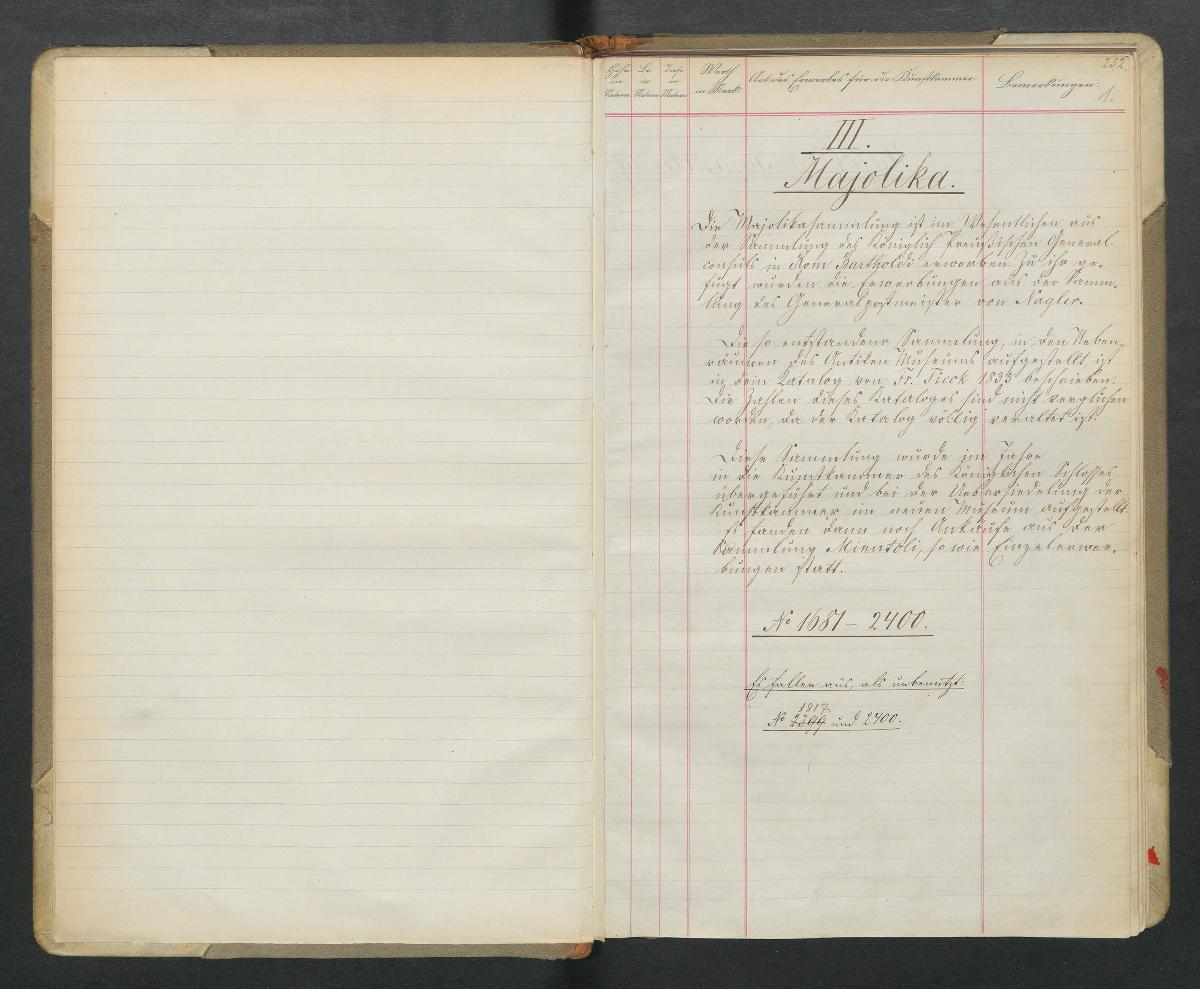 252.
1.
Höhe in Metern.
Br. in Metern
Tiefe in Metern
Werth in Mark.
Art des Erwerbes für die Kunstkammer
Bemerkungen.
III.
Majolika.
Die Majolikasammlung ist im Wesentlichen aus
der Sammlung des Königlich Preußischen General
consuls in Rom Bartholdi erworben. Zu ihr ge-
fügt wurden die Erwerbungen aus der Samm-
lung des Generalpostmeister von Nagler.
Die so entstandene Sammlung, in den Neben-
räumen des Antiken Museums aufgestellt, ist
in dem Katalog von Fr. Tieck 1835 beschrieben.
Die Zahlen dieses Kataloges sind nicht verglichen
worden, da der Katalog völlig veraltet ist.
Diese Sammlung wurde im Jahre
in die Kunstkammer des Königlichen Schlosses
übergeführt und bei der Uebersiedelung der
Kunstkammer im neuen Museum aufgestellt.
Es fanden dann noch Ankäufe aus der
Sammlung Mienutoli, sowie Einzelerwer-
bungen statt.
No 1681 – 2400.
Es fallen aus, als unbenutzt:
1817
No und 2400.